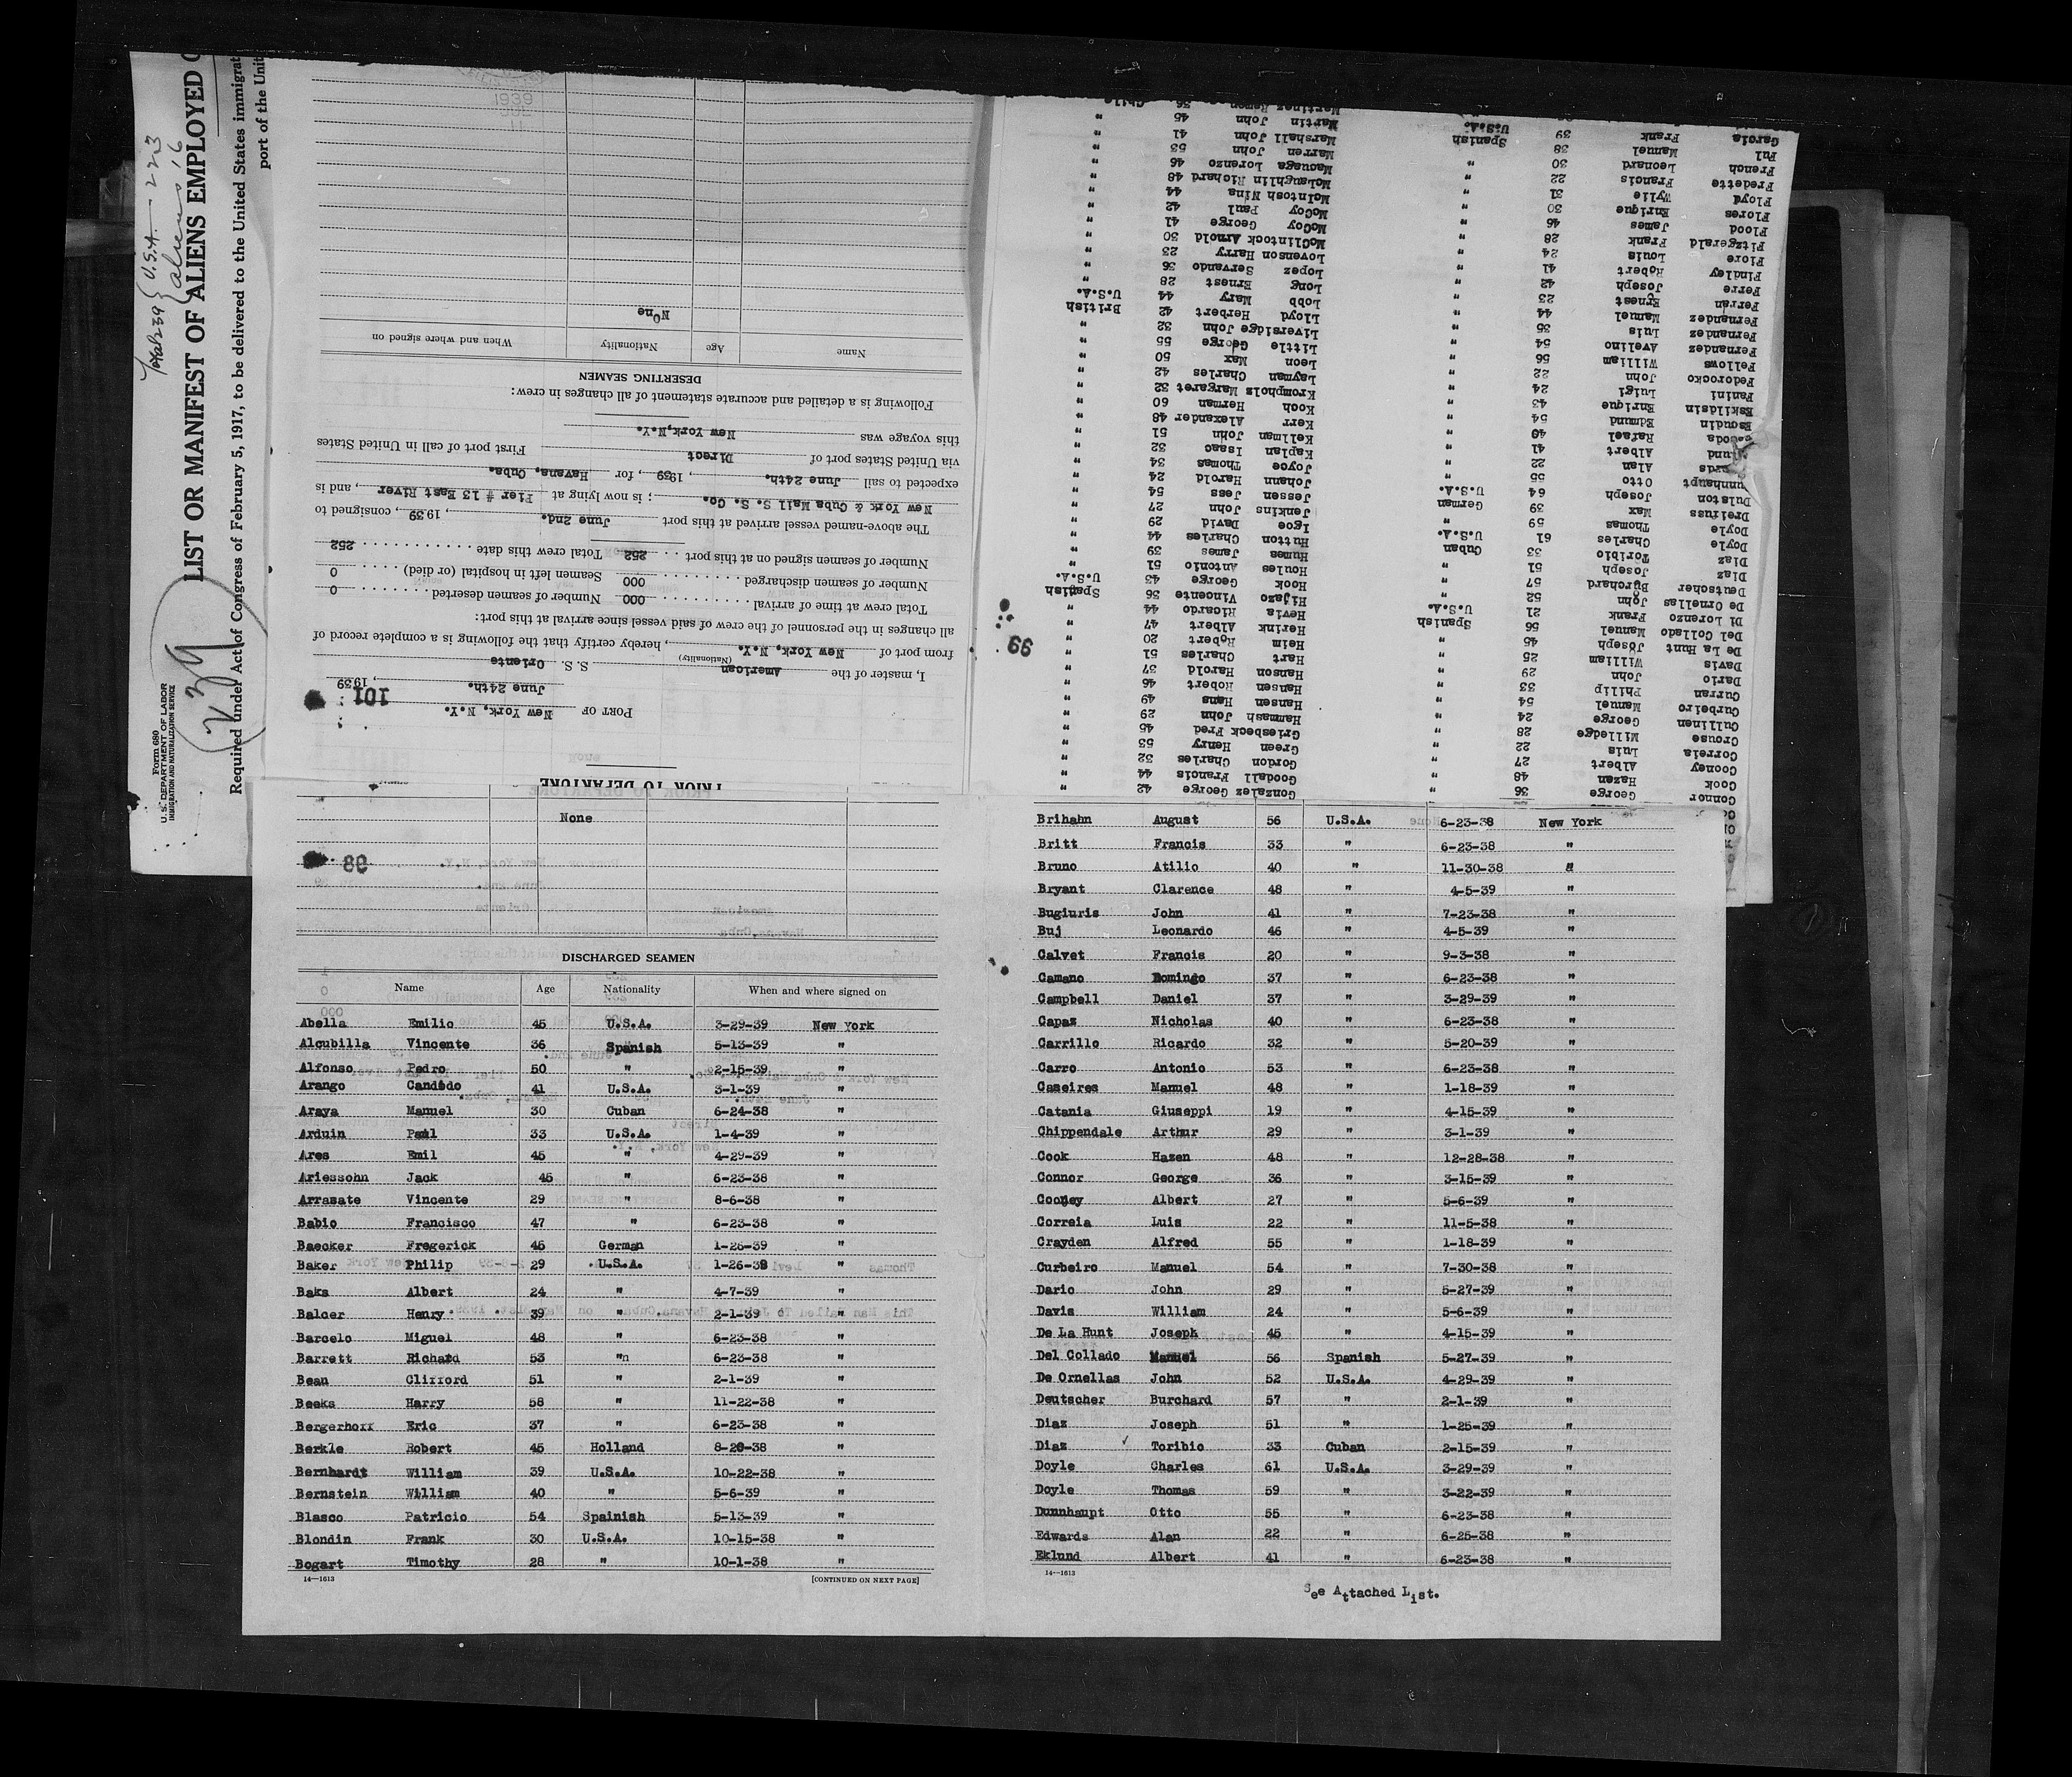 Form 680
U. S. DEPARTMENT OF LABOR
IMMIGRATION AND NATURALIZATION SERVICE
Total 239 { U.S.A. — 223
aliens 16
239
LIST OR MANIFEST OF ALIENS EMPLOYED
Required under Act of Congress of February 5, 1917, to be delivered to the United States immigrat
port of the Unit
PRIOR TO DEPARTURE
101
PORT OF New York, N.Y.
June 24th. , 1939
I, master of the American S. S. Oriente
(Nationality)
from port of New York, N.Y. , hereby certify that the following is a complete record of
all changes in the personnel of the crew of said vessel since arrival at this port:
Total crew at time of arrival 000 Number of seamen deserted 0
Number of seamen discharged 000 Seamen left in hospital (or died) 0
Number of seamen signed on at this port 252 Total crew this date 252
The above-named vessel arrived at this port June 2nd. , 1939, consigned to
New York & Cuba Mail S. S. Co. ; is now lying at Pier # 13 East River , and is
expected to sail June 24th. , 1939 , for Havana, Cuba.
via United States port of Direct First port of call in United States
this voyage was New York, N.Y.
Following is a detailed and accurate statement of all changes in crew:
DESERTING SEAMEN
Name Age Nationality When and where signed on
None
1939
99
Connor George 36 "
Cook Hazen 48 "
Cooney Albert 27 "
Correia Luis 22 "
Crouse Milledge 28 "
Cullinen George 24 "
Curbeiro Manuel 54 "
Curran Philip 33 "
Dario John 29 "
Davis William 25 "
De La Hunt Joseph 45 "
Del Collado Manuel 56 Spanish
Di Lorenzo Frank 21 U.S.A.
De Ornellas John 52 "
Deutscher Burchard 57 "
Diaz Joseph 51 "
Diaz Toribio 33 Cuban
Doyle Charles 61 U.S.A.
Doyle Thomas 59 "
Dreifuss Max 39 German
Dulston Joseph 64 U.S.A.
Otto 55 "
Alan 22 "
Albert 41 "
Rafael 40 "
Esqudin Edmund 54 "
Eskildsin Enrique 43 "
Fanini Luigi 24 "
Fedorocko John 22 "
Fellows William 56 "
Fernandez Avelino 54 "
Fernandez Luis 35 "
Fernandez Manuel 44 "
Ferran Ernest 23 "
Ferre Joseph 42 "
Findley Robert 41 "
Fiore Louis 24 "
Fitzgerald Frank 28 "
Flood James 45 "
Flores Enrique 30 "
Floyd Wylie 31 "
Fredette Francis 22 "
French Leonard 30 "
Ful Manuel 38 Spanish
Garcia Frank 39 U.S.A.
Gonzalez George 42 "
Goodall Francis 44 "
Gordon Charles 32 "
Green Henry 53 "
Griesbeck Fred 45 "
Hammash John 29 "
Hansen Hans 49 "
Hansen Robert 46 "
Hanson Harold 37 "
Hart Charles 51 "
Heim Robert 20 "
Herink Albert 47 "
Hevia Ricardo 44 "
Hijazo Vincente 36 Spanish
Hook George 43 U.S.A.
Houles Antonio 51 "
Humes James 39 "
Hutton Charles 44 "
Igoe David 29 "
Jenkins John 27 "
Jessen Jess 54 "
Johann Harold 24 "
Joyce Thomas 34 "
Kaplan Isaac 32 "
Kellman John 51 "
Kerr Alexander 48 "
Koch Herman 60 "
Krompholz Margaret 32 "
Layman Charles 42 "
Leon Max 50 "
Little George 55 "
Liversidge John 32 "
Lloyd Herbert 42 British
Lobb Mary 44 U.S.A.
Long Ernest 28 "
Lopez Servando 36 "
Lovenson Harry 23 "
McClintock Arnold 30 "
McCoy George 41 "
McCoy Paul 42 "
McIntosh Nina 44 "
McLaughlin Richard 48 "
Macuaga Lorenzo 46 "
Marren John 53 "
Marshall John 41 "
Martin John 45 "
Martinez Ramon 36 Chile
None
98
DISCHARGED SEAMEN
Name Age Nationality When and where signed on
Abella Emilio 45 U.S.A. 3-29-39 New York
Alcubilla Vincente 36 Spanish 5-13-39 "
Alfonso Pedro 50 " 2-15-39 "
Arango Candido 41 U.S.A. 3-1-39 "
Araya Manuel 30 Cuban 6-24-38 "
Arduin Paul 33 U.S.A. 1-4-39 "
Ares Emil 45 " 4-29-39 "
Ariessohn Jack 45 " 6-23-38 "
Arrasate Vincente 29 " 8-6-38 "
Babio Francisco 47 " 6-23-38 "
Baecker Fregerick 45 German 1-26-39 "
Baker Philip 29 U.S.A. 1-26-39 "
Baks Albert 24 " 4-7-39 "
Balcer Henry 39 " 2-1-39 "
Barcelo Miguel 48 " 6-23-38 "
Barrett Richard 53 "n 6-23-38 "
Bean Clifford 51 " 2-1-39 "
Beeks Harry 58 " 11-22-38 "
Bergerhoff Eric 37 " 6-23-38 "
Berkle Robert 45 Holland 8-20-38 "
Bernhardt William 39 U.S.A. 10-22-38 "
Bernstein William 40 " 5-6-39 "
Blasco Patricio 54 Spainish 5-13-39 "
Blondin Frank 30 U.S.A. 10-15-38 "
Bogart Timothy 28 " 10-1-38 "
14—1613 [CONTINUED ON NEXT PAGE]
Brihahn August 56 U.S.A. 6-23-38 New York
Britt Francis 33 " 6-23-38 "
Bruno Atilio 40 " 11-30-38 "
Bryant Clarence 48 " 4-5-39 "
Bugiuris John 41 " 7-23-38 "
Buj Leonardo 46 " 4-5-39 "
Calvet Francis 20 " 9-3-38 "
Camano Domingo 37 " 6-23-38 "
Campbell Daniel 37 " 3-29-39 "
Capaz Nicholas 40 " 6-23-38 "
Carrillo Ricardo 32 " 5-20-39 "
Carro Antonio 53 " 6-23-38 "
Caseires Manuel 48 " 1-18-39 "
Catania Giuseppi 19 " 4-15-39 "
Chippendale Arthur 29 " 3-1-39 "
Cook Hazen 48 " 12-28-38 "
Connor George 36 " 3-15-39 "
Cooney Albert 27 " 5-6-39 "
Correia Luis 22 " 11-5-38 "
Crayden Alfred 55 " 1-18-39 "
Curbeiro Manuel 54 " 7-30-38 "
Dario John 29 " 5-27-39 "
Davis William 24 " 5-6-39 "
De La Hunt Joseph 45 " 4-15-39 "
Del Collado Manuel 56 Spanish 5-27-39 "
De Ornellas John 52 U.S.A. 4-29-39 "
Deutscher Burchard 57 " 2-1-39 "
Diaz Joseph 51 " 1-25-39 "
Diaz Toribio 33 Cuban 2-15-39 "
Doyle Charles 61 U.S.A. 3-29-39 "
Doyle Thomas 59 " 3-22-39 "
Dunnhaupt Otto 55 " 6-23-38 "
Edwards Alan 22 " 6-25-38 "
Eklund Albert 41 " 6-23-38 "
14—1613
See Attached List.